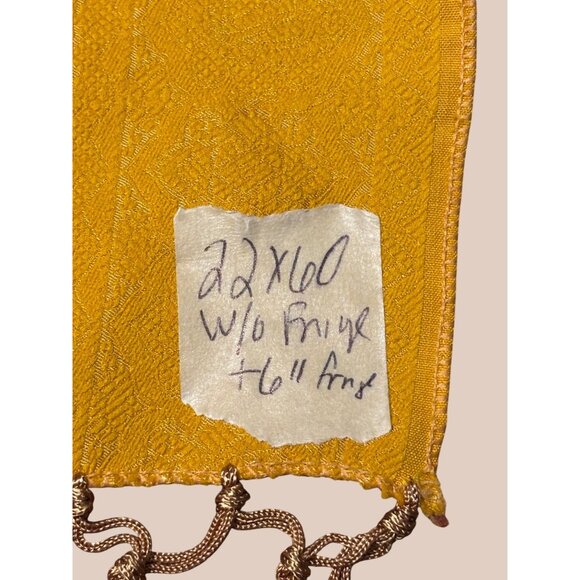 22x60
W/o Fringe
+6" fringe